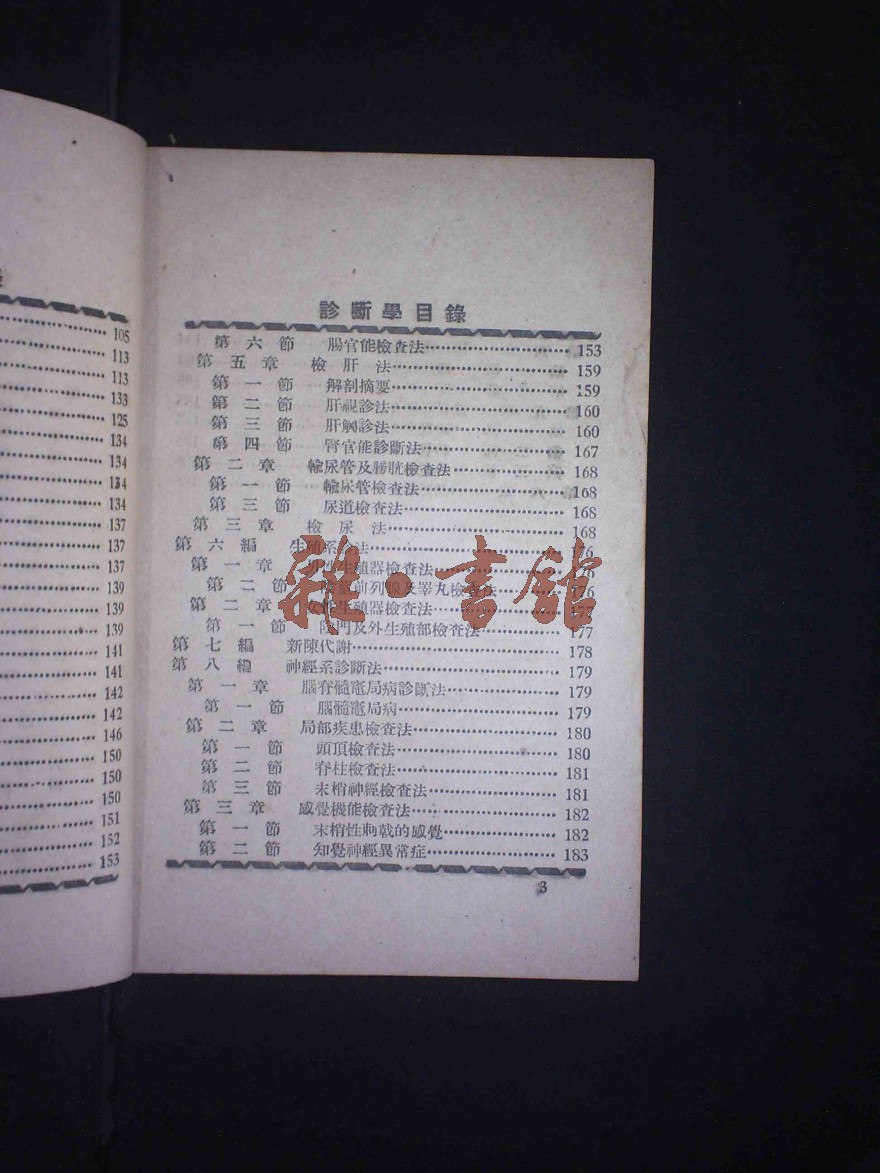 105
113
113
133
125
134
134
134
134
137
137
137
139
139
139
141
141
142
142
146
150
150
150
151
152
153
診斷學目錄
第六節 腸官能檢查法 153
第五章 檢肝法 159
第一節 解剖摘要 159
第二節 肝視診法 160
第三節 肝觸診法 160
第四節 腎官能診斷法 167
第二章 輸尿管及膀胱檢查法 168
第一節 輸尿管檢查法 168
第三節 尿道檢查法 168
第三章 檢尿法 168
第六編 生殖系 法 176
第一章 生殖器檢查法 176
第二節 前列腺及睪丸檢查法 176
第二章 生殖器檢查法 177
第一節 陰門及外生殖部檢查法 177
第七編 新陳代謝 178
第八編 神經系診斷法 179
第一章 腦脊髓竈局病診斷法 179
第一節 腦髓竈局病 179
第二章 局部疾患檢查法 180
第一節 頭頂檢查法 180
第二節 脊柱檢查法 181
第三節 末梢神經檢查法 181
第三章 感覺機能檢查法 182
第一節 末梢性刺戟的感覺 182
第二節 知覺神經異常症 183
3
雜·書館